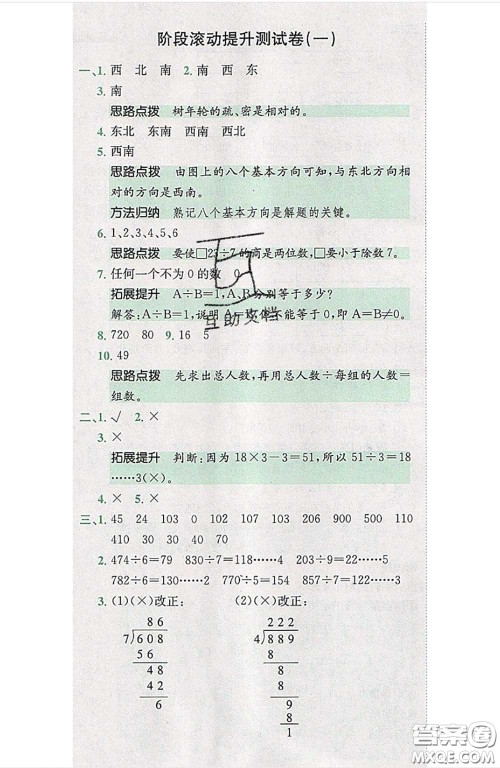 阶段滚动提升测试卷(一)
一、1. 西 北 南 2. 南 西 东
3. 南
思路点拨 树年轮的疏、密是相对的。
4. 东北 东南 西南 西北
5. 西南
思路点拨 由图上的八个基本方向可知,与东北方向相
对的方向是西南。
方法归纳 熟记八个基本方向是解题的关键。
6. 1、2、3、4、5、6
思路点拨 要使□23÷7的商是两位数,□要小于除数7。
7. 任何一个不为0的数 0
拓展提升 A÷B=1,A、B分别等于多少?
解答:A÷B=1,说明A=B,但不能等于0,即A=B≠0。
互助文档
8. 720 80 9. 16 5
10. 49
思路点拨 先求出总人数,再用总人数÷每组的人数=
组数。
二、1. √ 2. ×
3. ×
拓展提升 判断:因为18×3-3=51,所以51÷3=18
……3(×)。
4. × 5. ×
三、1. 45 24 103 0 102 107 208 900 500 110
410 30 30 40 70
2. 474÷6=79 830÷7=118……4 203÷9=22……5
782÷6=130……2 770÷5=154 857÷7=122……3
3. (1)(×)改正: (2)(×)改正:
86 222
7)608 4)889
56 8
48 8
42 8
6 9
8
1
答案圈
MXQE.COM